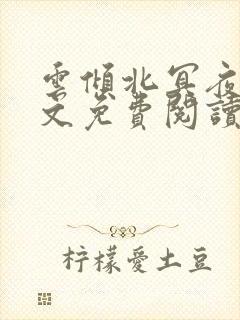 雲傾北冥夜
文免費閱讀
柠檬愛土豆